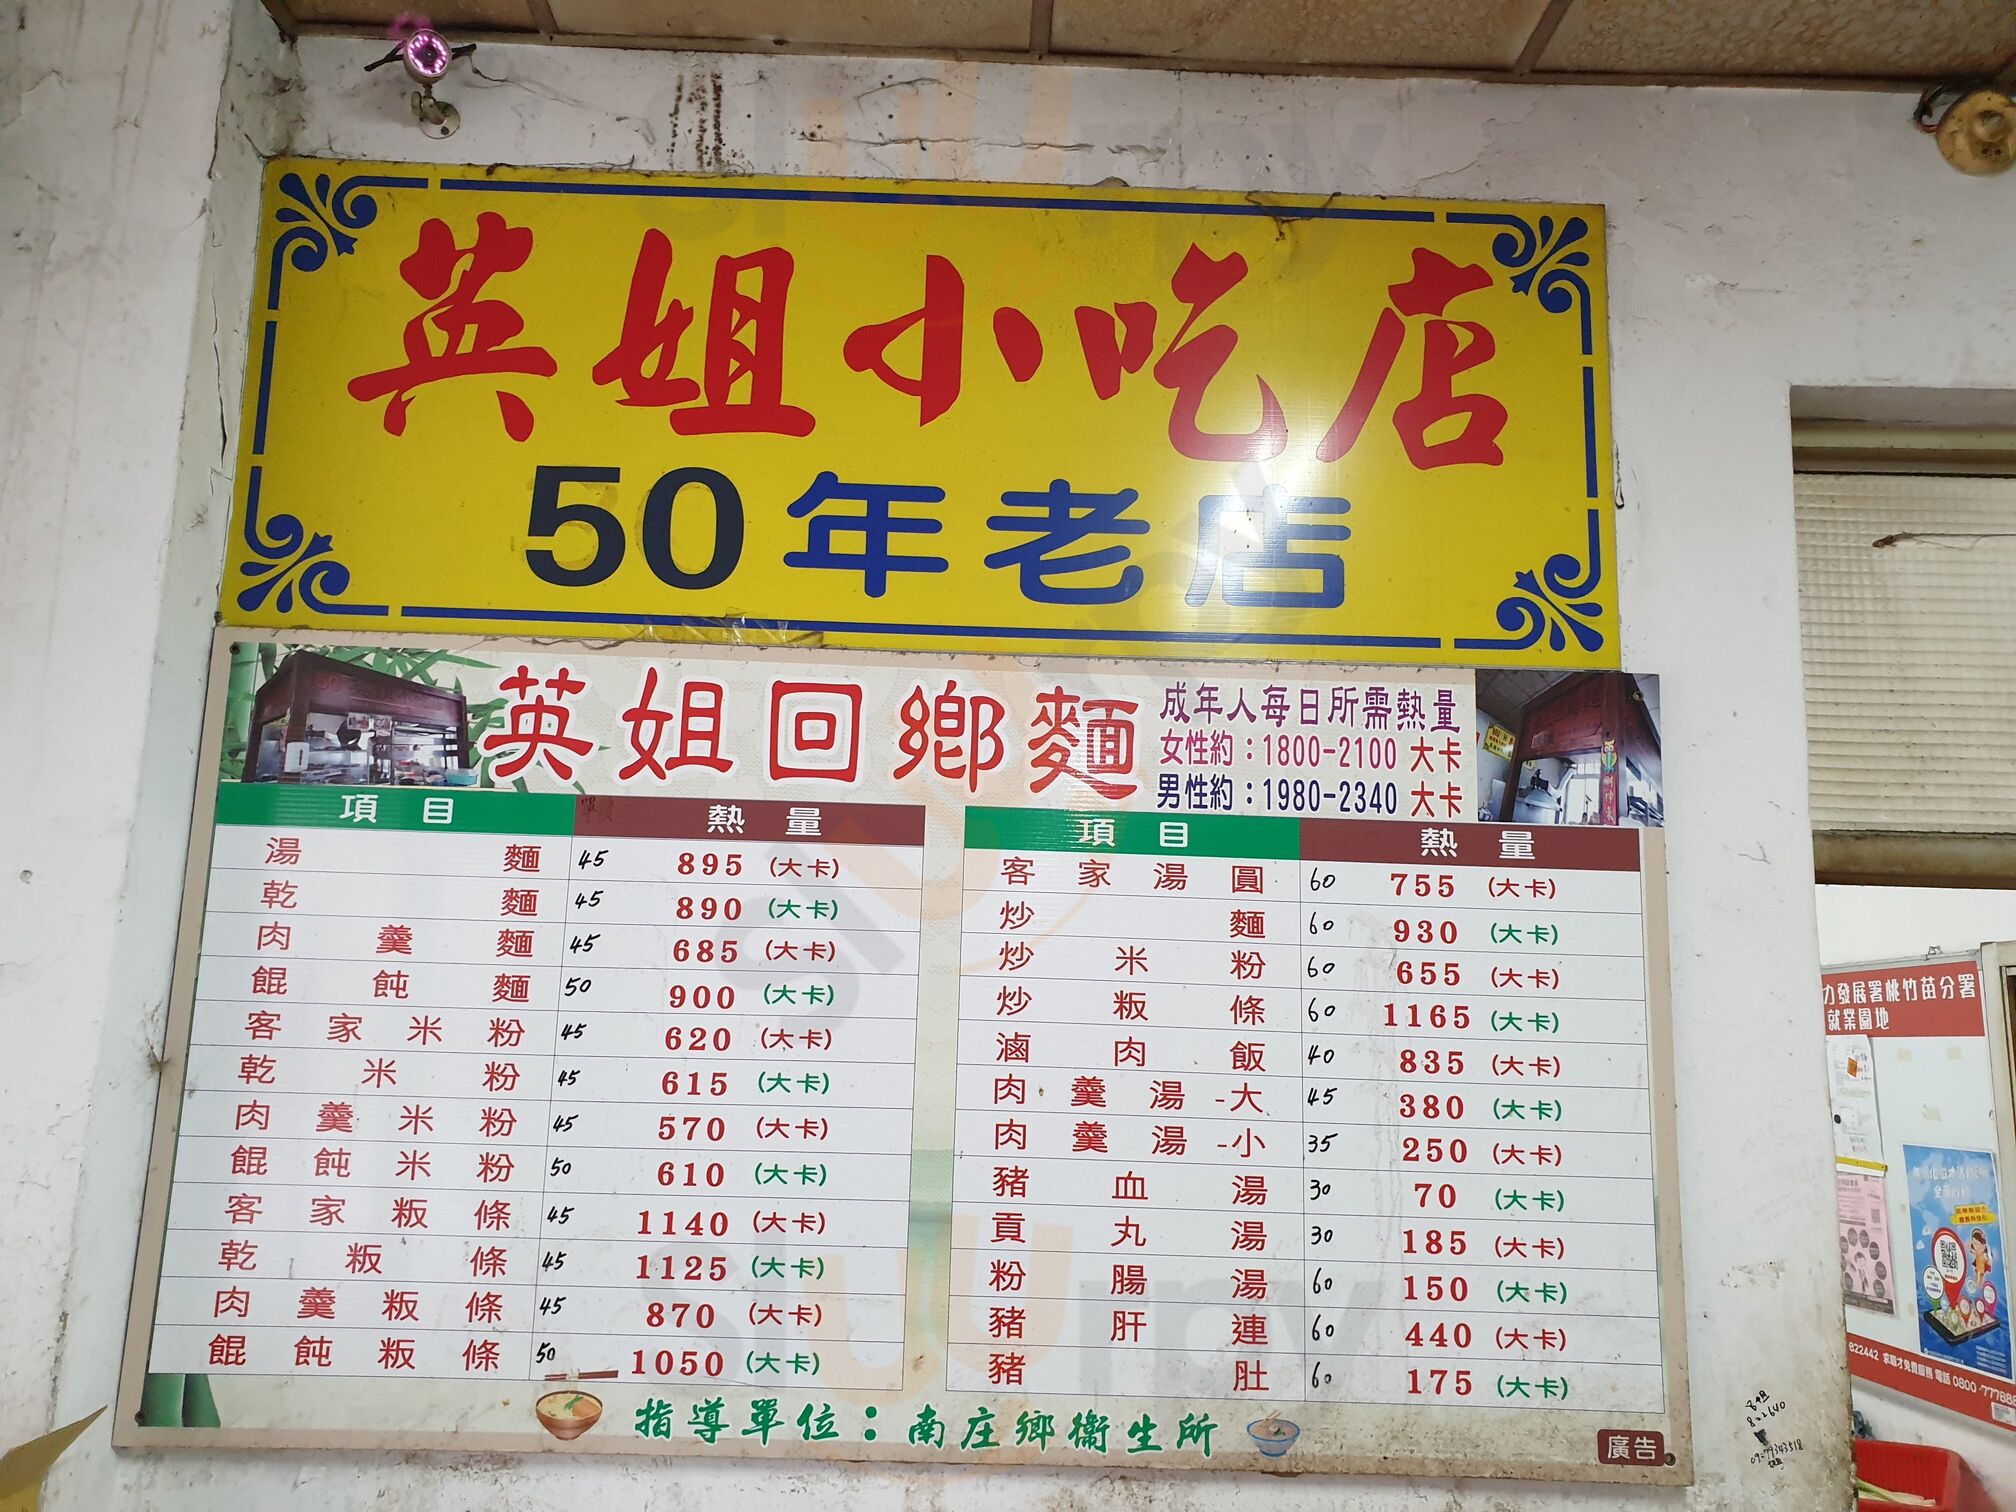 英姐小吃店
50年老店
英姐回鄉麵
成年人每日所需熱量
女性約：1800-2100 大卡
男性約：1980-2340 大卡
項目 單價 熱量
湯麵 45 895 (大卡)
乾麵 45 890 (大卡)
肉羹麵 45 685 (大卡)
餛飩麵 50 900 (大卡)
客家米粉 45 620 (大卡)
乾米粉 45 615 (大卡)
肉羹米粉 45 570 (大卡)
餛飩米粉 50 610 (大卡)
客家粄條 45 1140 (大卡)
乾粄條 45 1125 (大卡)
肉羹粄條 45 870 (大卡)
餛飩粄條 50 1050 (大卡)
項目 熱量
客家湯圓 60 755 (大卡)
炒麵 60 930 (大卡)
炒米粉 60 655 (大卡)
炒粄條 60 1165 (大卡)
滷肉飯 40 835 (大卡)
肉羹湯-大 45 380 (大卡)
肉羹湯-小 35 250 (大卡)
豬血湯 30 70 (大卡)
貢丸湯 30 185 (大卡)
粉腸湯 60 150 (大卡)
豬肝連 60 440 (大卡)
豬肚 60 175 (大卡)
指導單位：南庄鄉衞生所
廣告
力發展署桃竹苗分署
就業園地
822442 求職才免費服務 電話 0800-777888
822640